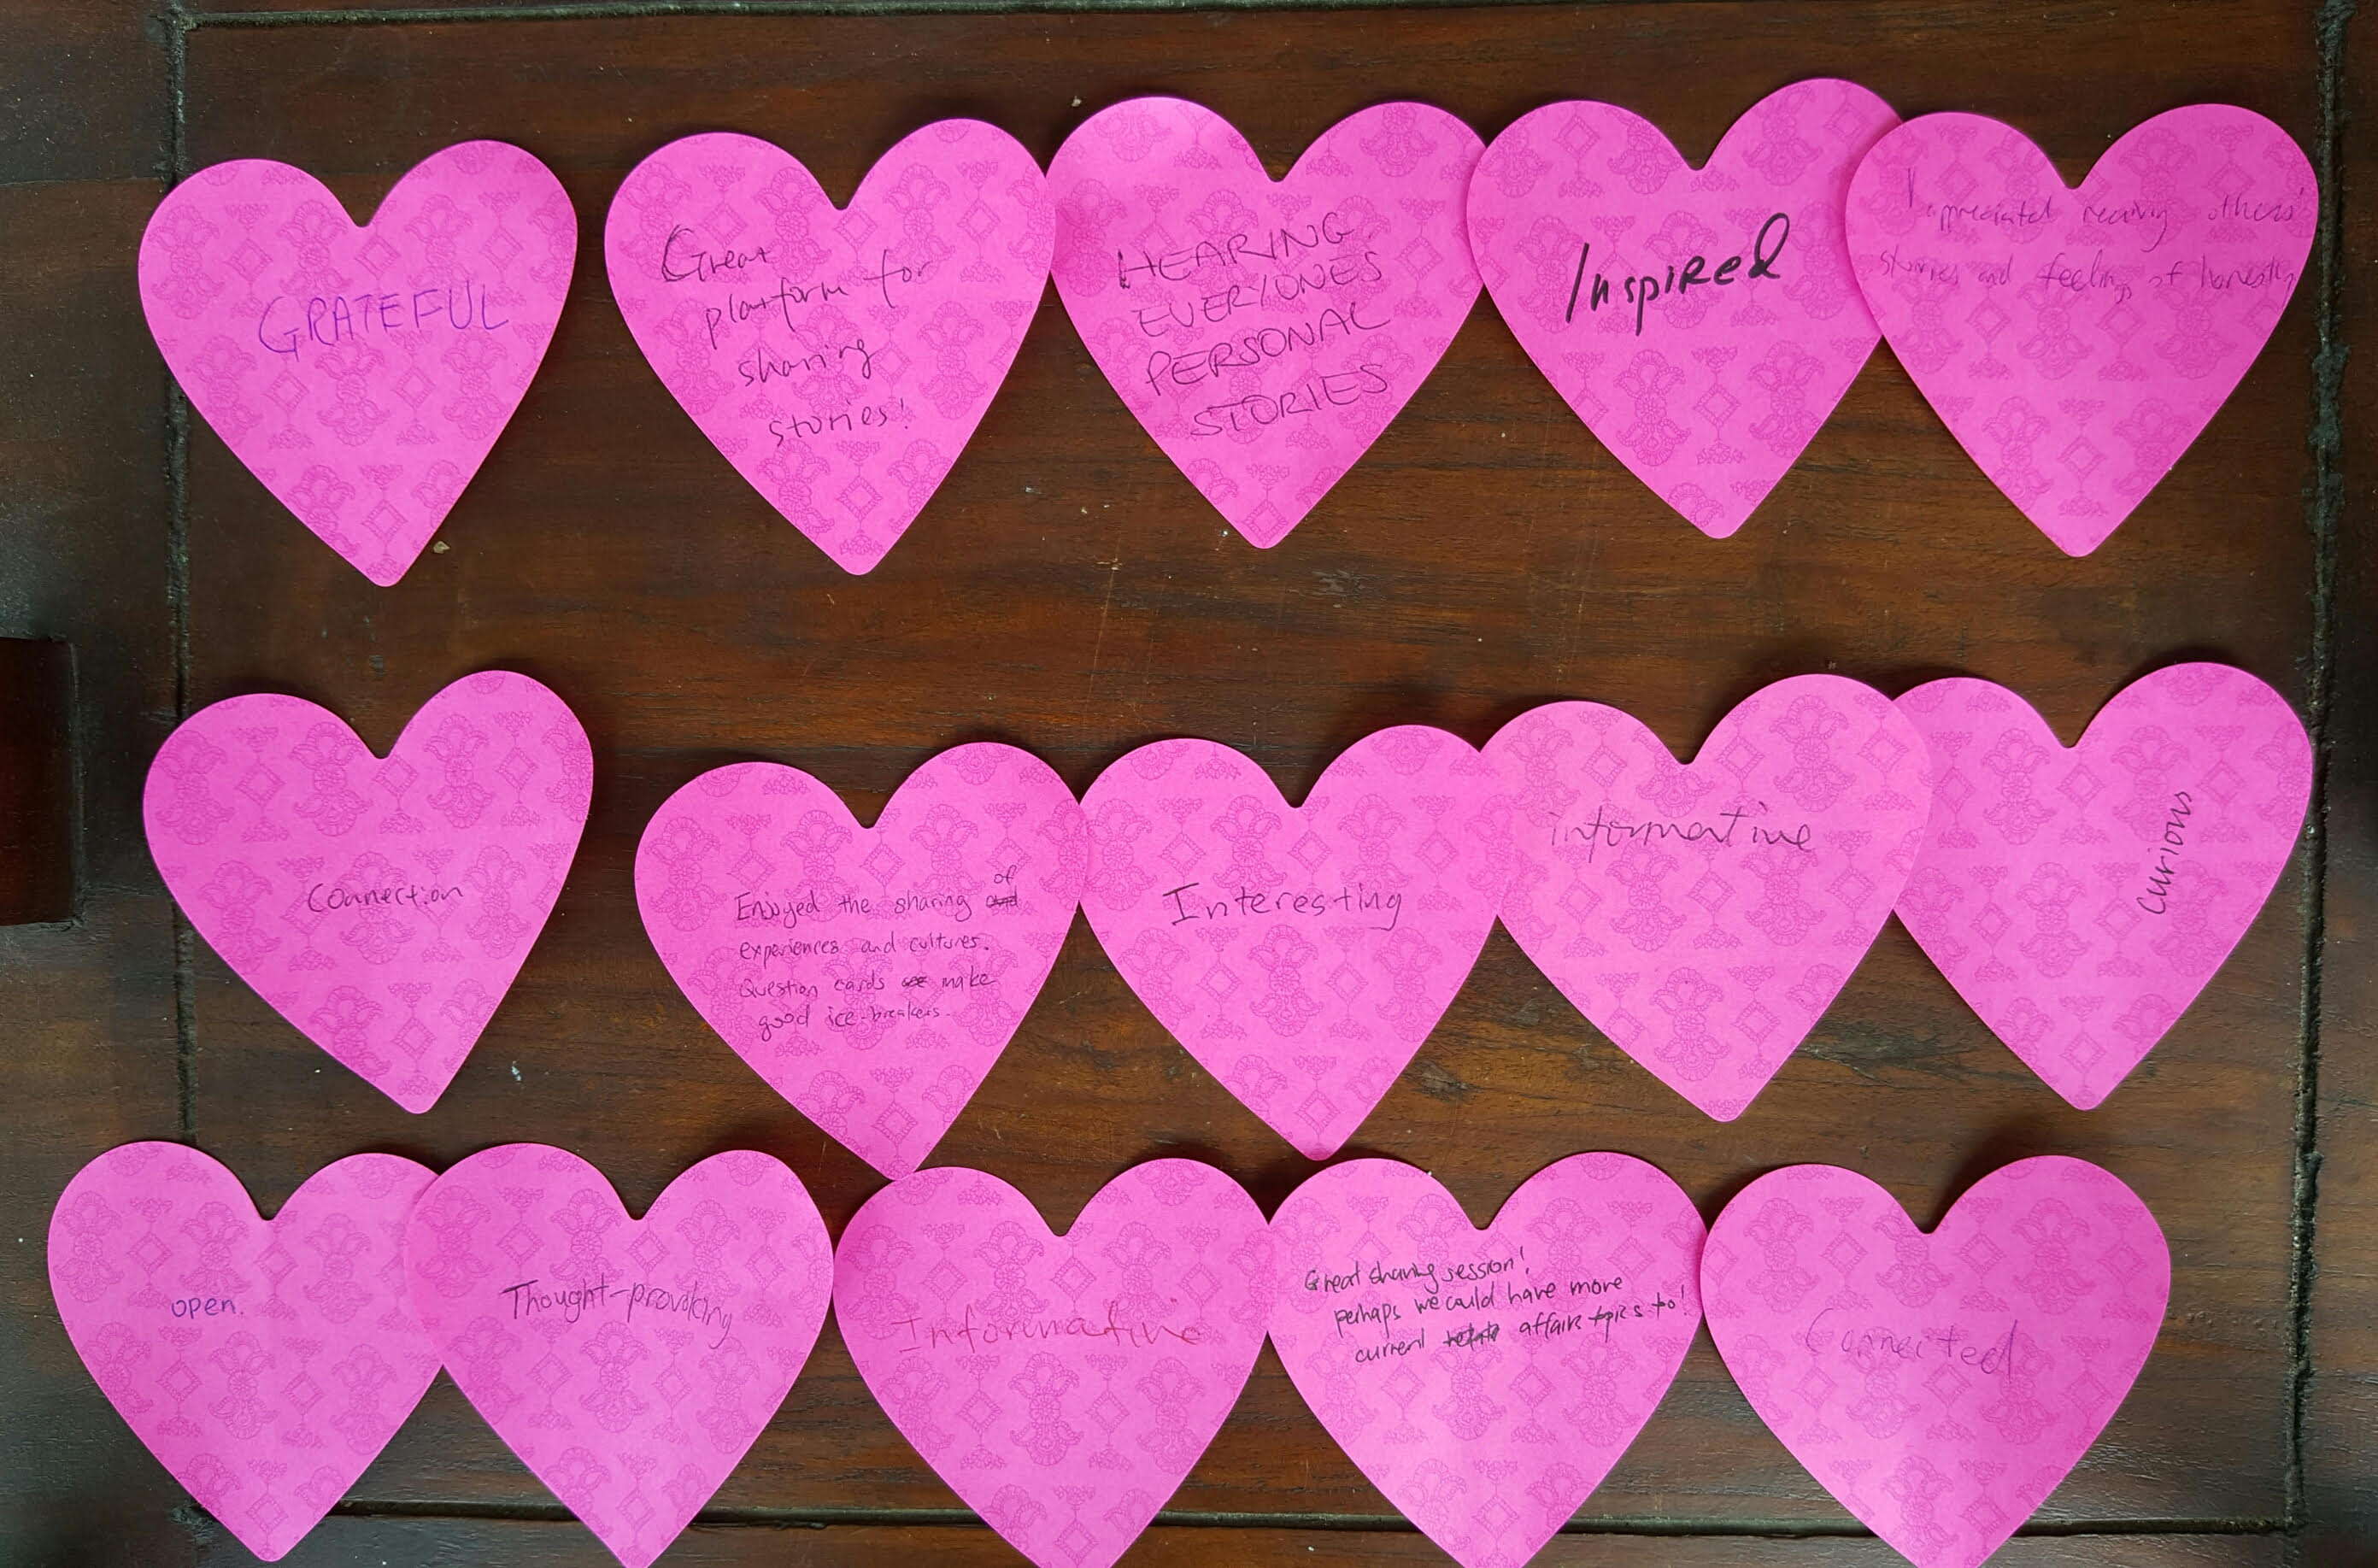 GRATEFUL
Great
platform for
sharing
stories!
HEARING
EVERYONES
PERSONAL
STORIES
Inspired
I appreciated receiving others'
stories and feelings of honesty
Connection
Enjoyed the sharing of
experiences and cultures.
Question cards make
good ice-breakers.
Interesting
informative
Curious
open.
Thought-provoking
Informative
Great sharing session!
perhaps we could have more
current affairs topics to!
Connected